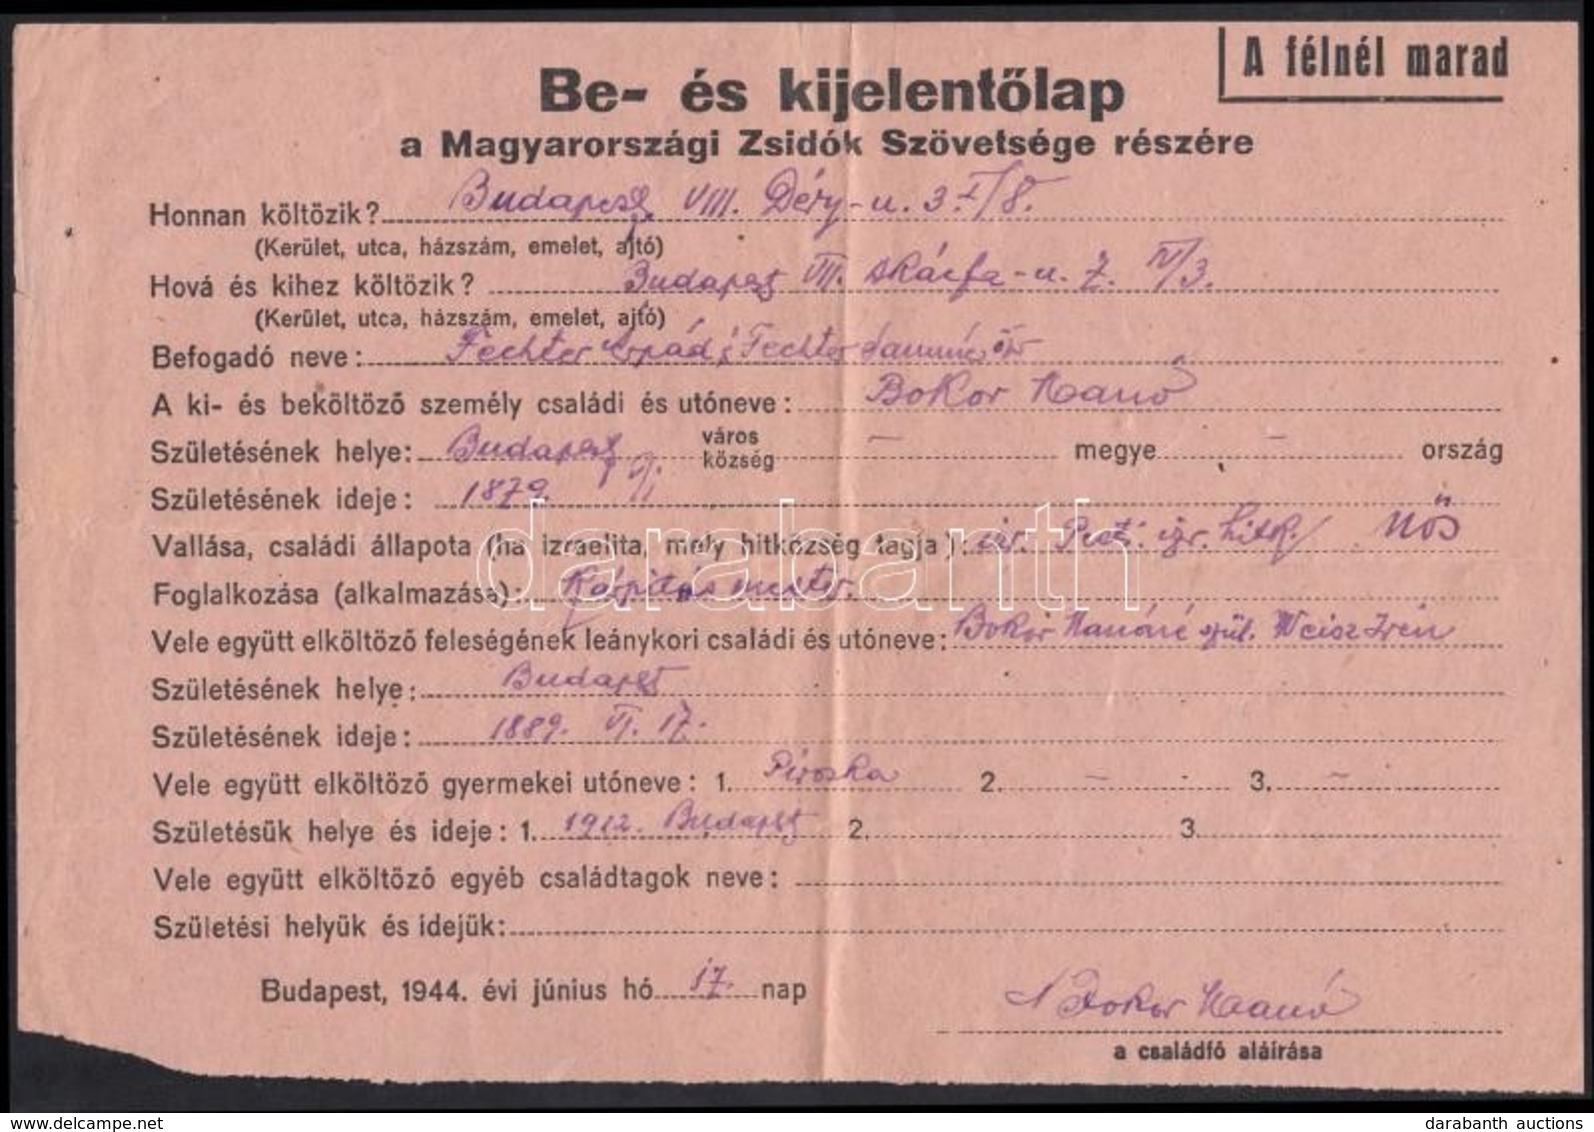 A félnél marad
Be- és kijelentőlap
a Magyarországi Zsidók Szövetsége részére
Honnan költözik? Budapest VIII. Déry-u. 3 I/8.
(Kerület, utca, házszám, emelet, ajtó)
Hová és kihez költözik? Budapest VII. Akácfa-u. 7. IV/3.
(Kerület, utca, házszám, emelet, ajtó)
Befogadó neve: Fechter Árpád Fechter
A ki- és beköltöző személy családi és utóneve: Bokor Manó
Születésének helye: Budapest város község – megye – ország
Születésének ideje: 1879.
Vallása, családi állapota (ha izraelita, mely hitközség tagja): izr. Pesti izr. hitk. Nős
Foglalkozása (alkalmazása): Kárpitos mester.
Vele együtt elköltöző feleségének leánykori családi és utóneve: Bokor Manóné szül. Weisz Irén
Születésének helye: Budapest
Születésének ideje: 1889. VI. 17.
Vele együtt elköltöző gyermekei utóneve: 1. Piroska 2. – 3. –
Születésük helye és ideje: 1. 1912. Budapest 2. 3.
Vele együtt elköltöző egyéb családtagok neve:
Születési helyük és idejük:
Budapest, 1944. évi június hó 17. nap
Bokor Manó
a családfő aláírása
darabanth
delcampe.net
darabanth auctions